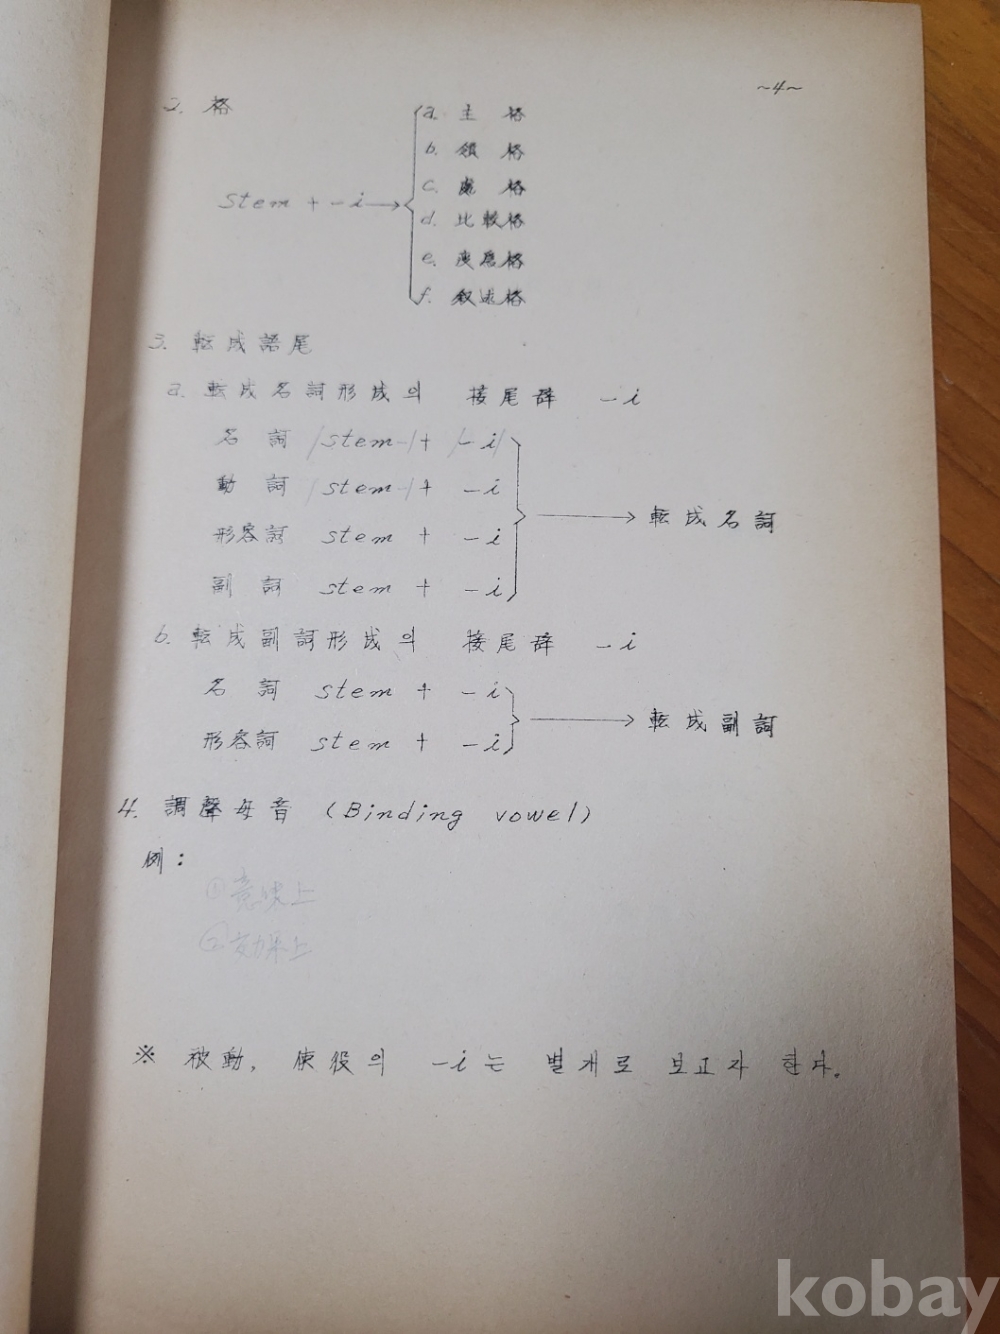 ~4~
2. 格
a. 主 格
b. 領 格
c. 處 格
stem + -i →
d. 比較格
e. 格
f. 叙述格
3. 転成語尾
a. 転成名詞形成의 接尾辞 -i
名 詞 /stem-/ + /-i/
動 詞 /stem-/ + -i
→ 転成名詞
形容詞 stem + -i
副 詞 stem + -i
b. 転成副詞形成의 接尾辞 -i
名 詞 stem + -i
→ 転成副詞
形容詞 stem + -i
4. 調聲母音 (Binding vowel)
例:
① 意味上
② 効果上
※ 被動, 使役의 -i는 별개로 보고자 한다.
kobay